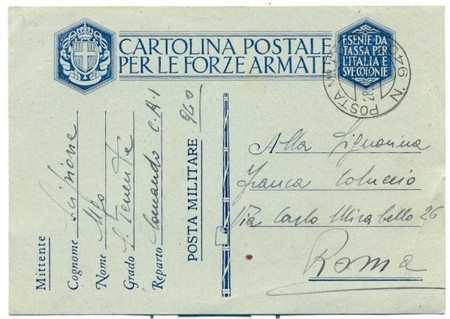 CARTOLINA POSTALE
PER LE FORZE ARMATE
ESENTE DA
TASSA PER
L'ITALIA E
SVE COLONIE
POSTA N.
Mittente
Cognome Scipione
Nome
Grado S. Tenente
Reparto Comando C.A.
POSTA MILITARE
Alla Signorina
Franca Coluccio
Via Carlo Mirabello 26
Roma